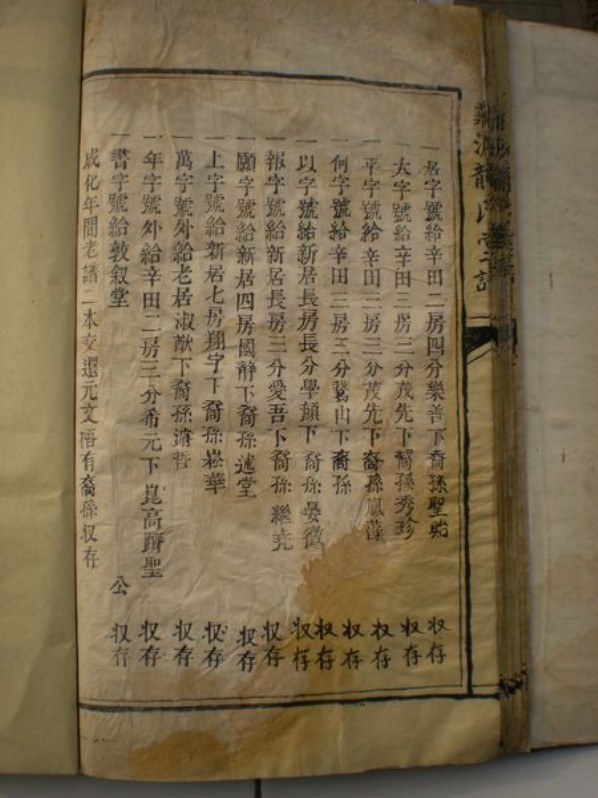 一居字號給辛田二房四分樂善下裔孫聖 收存
一大字號給辛田三房二分茂先下裔孫秀珍 收存
一平字號給辛田二房三分茂先下裔孫鳳藻 收存
一何字號給辛田三房三分鷲山下裔孫 收存
一以字號給新居長房長分學顏下裔孫晏徵 收存
一報字號給新居長房三分愛吾下裔孫繼堯 收存
一願字號給新居四房國靜下裔孫述堂 收存
一上字號給新居七房翔宇下裔孫崧華 收存
一萬字號外給老居淑猷下裔孫濬哲 收存
一年字號外給辛田二房三分希元下崑高躋聖 收存
一書字號給敦叙堂 公 收存
成化年間老譜二本交還元文 有裔孫収存